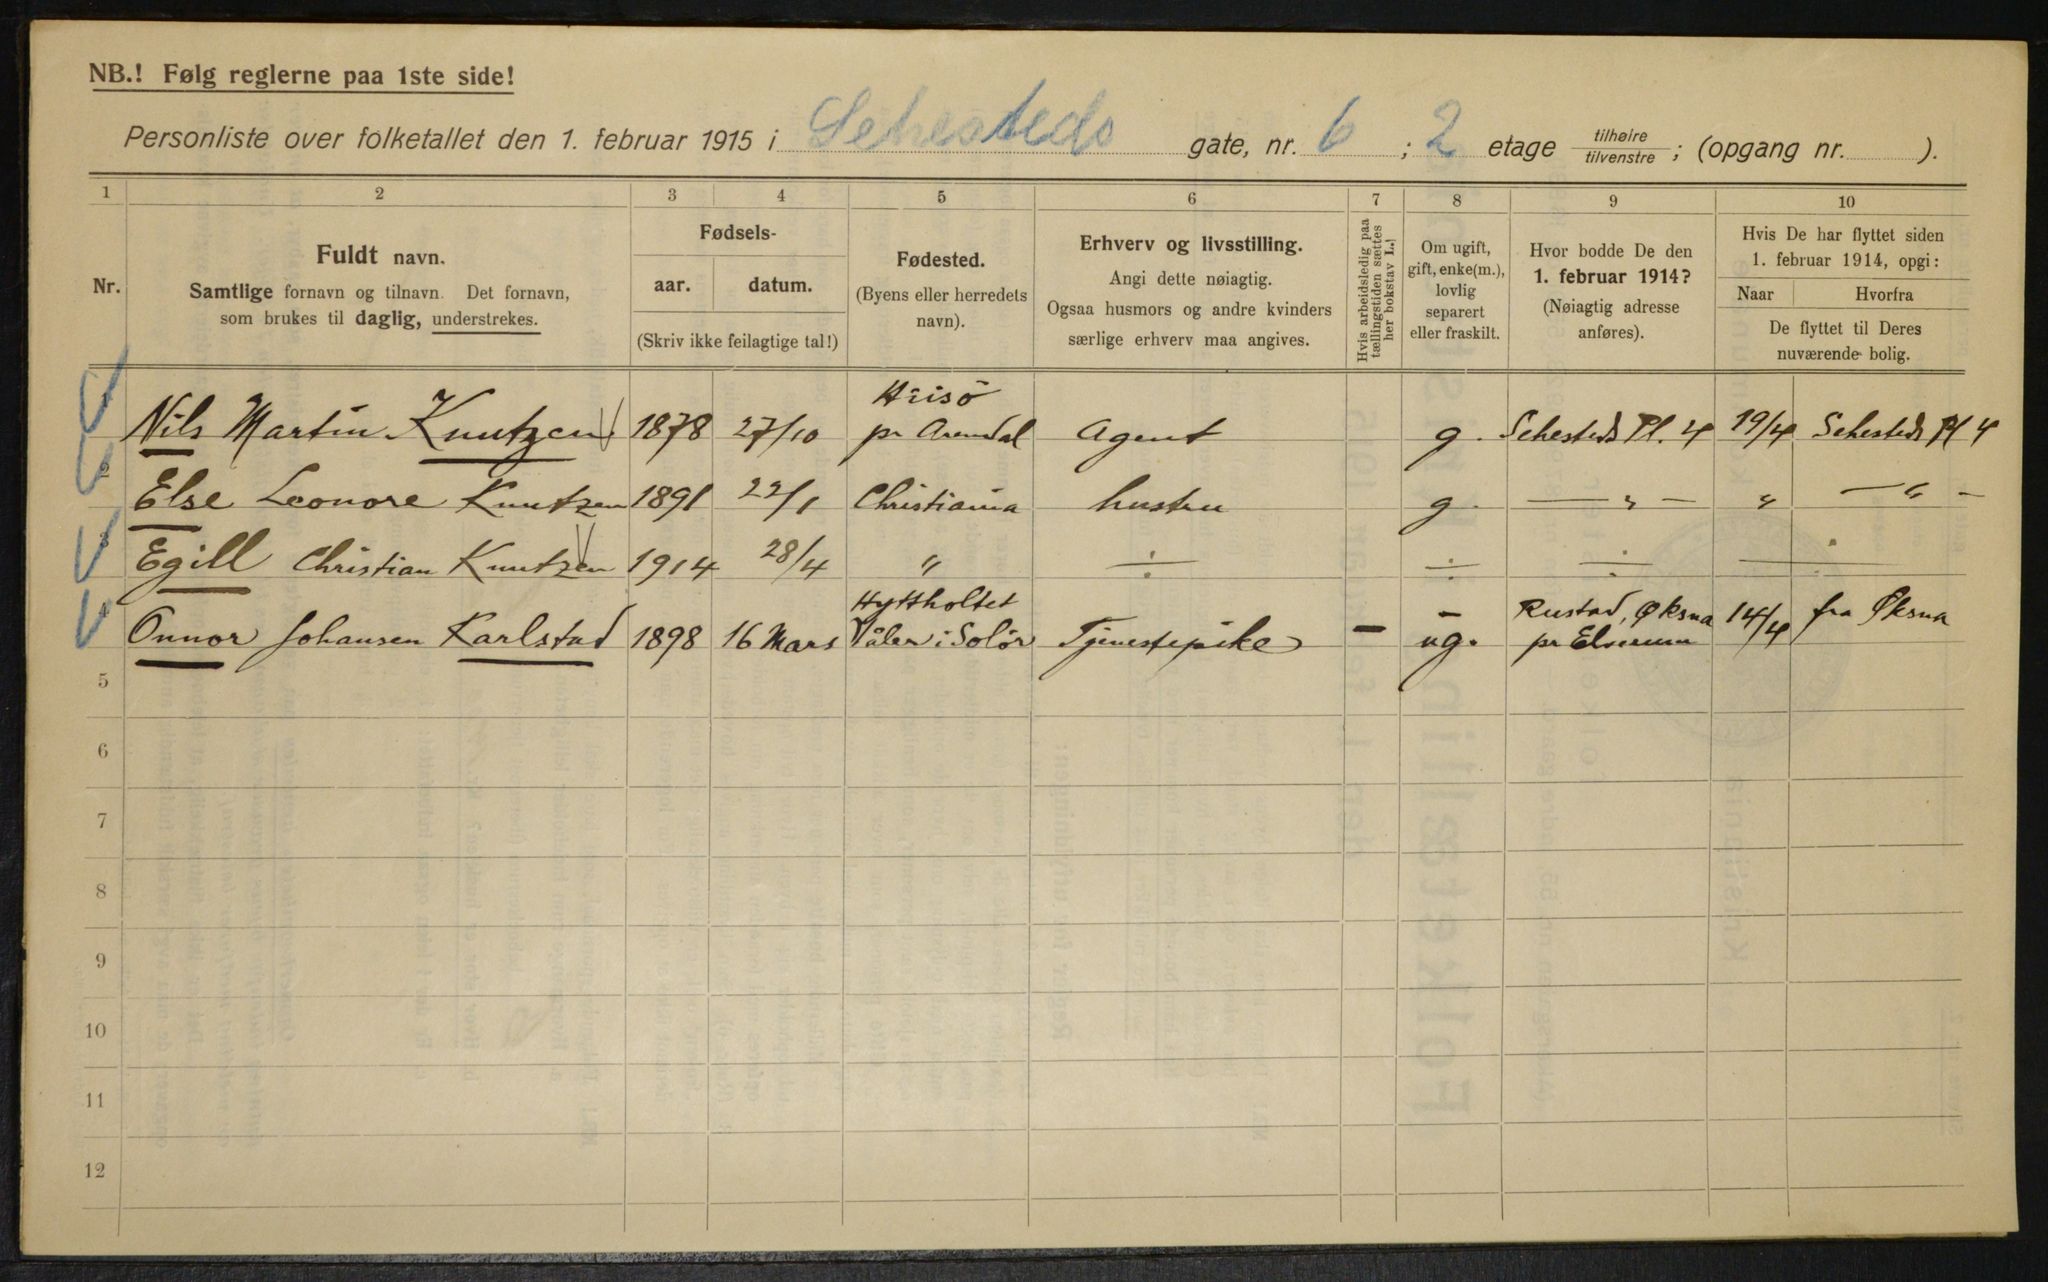 NB.! Følg reglerne paa 1ste side!
Personliste over folketallet den 1. februar 1915 i Sehesteds gate, nr. 6 ; 2 etage tilhøire/tilvenstre ; (opgang nr. ).
1 2 3 4 5 6 7 8 9 10
Nr.
Fuldt navn.
Samtlige fornavn og tilnavn. Det fornavn,
som brukes til daglig, understrekes.
Fødsels-
aar. datum.
(Skriv ikke feilagtige tal!)
Fødested.
(Byens eller herredets
navn).
Erhverv og livsstilling.
Angi dette nøiagtig.
Ogsaa husmors og andre kvinders
særlige erhverv maa angives.
Hvis arbeidsledig paa
tællingstiden sættes
her bokstav L.!
Om ugift,
gift, enke(m.),
lovlig
separert
eller fraskilt.
Hvor bodde De den
1. februar 1914?
(Nøiagtig adresse
anføres).
Hvis De har flyttet siden
1. februar 1914, opgi:
Naar Hvorfra
De flyttet til Deres
nuværende bolig.
Nils Martin Knutzen 1878 27/10 Hisö pr Arendal Agent g. Sehesteds Pl. 4 19/4 Sehesteds Pl 4
2 Else Leonore Knutzen 1891 22/1 Christiania hustru g. — " — " — " —
3 Egill Christian Knutzen 1914 28/4 " ÷ ÷ ÷ ÷
Onnor Johansen Karlstad 1898 16 Mars Hyttholtet Våler i Solör Tjenestepike — ug. Rustad, Øksna pr Elverum 14/4 fra Øksna
5
6
7
8
9
10
11
12